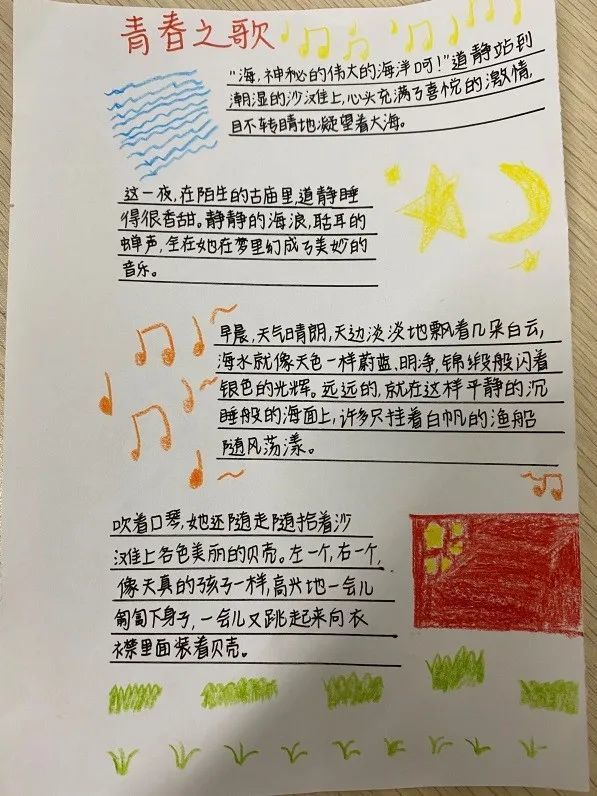 青春之歌
“海,神秘的伟大的海洋呵!”道静站到
潮湿的沙滩上,心头充满了喜悦的激情,
目不转睛地凝望着大海。
这一夜,在陌生的古庙里,道静睡
得很香甜。静静的海浪,聒耳的
蝉声,全在她在梦里幻成了美妙的
音乐。
早晨,天气晴朗,天边淡淡地飘着几朵白云,
海水就像天色一样蔚蓝、明净,锦缎般闪着
银色的光辉。远远的,就在这样平静的沉
睡般的海面上,许多只挂着白帆的渔船
随风荡漾。
吹着口琴,她还随走随拾着沙
滩上各色美丽的贝壳。左一个,右一个,
像天真的孩子一样,高兴地一会儿
匍匐下身子,一会儿又跳起来向衣
襟里面装着贝壳。